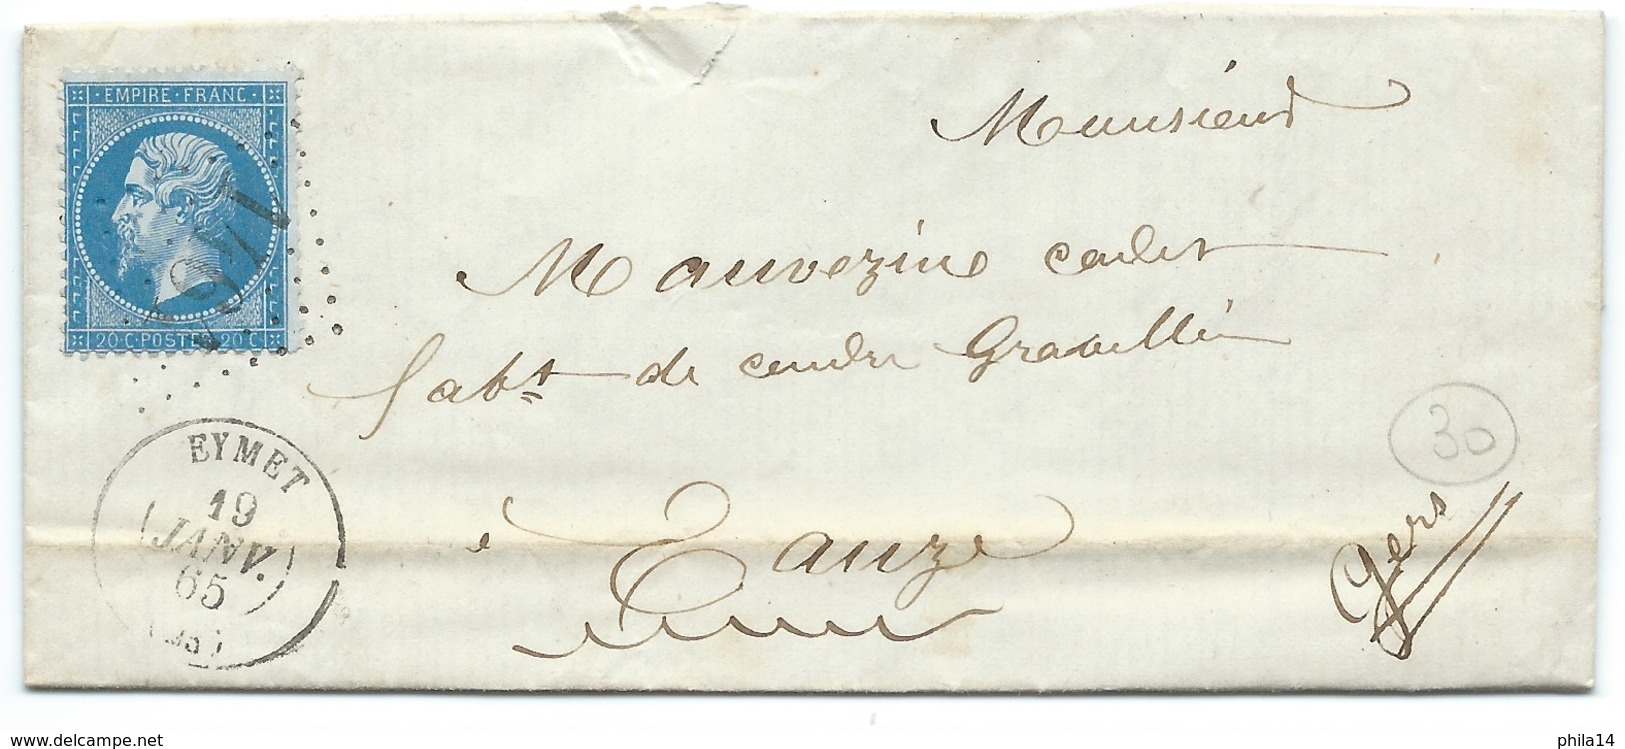 EMPIRE · FRANC ·
20 C · POSTES · 20 C
1497
Monsieur
Mauvezine cadet
fabt de cendre Gravellée
à Eauze
Gers
30
EYMET
19
JANV.
65
www.delcampe.net
phila14